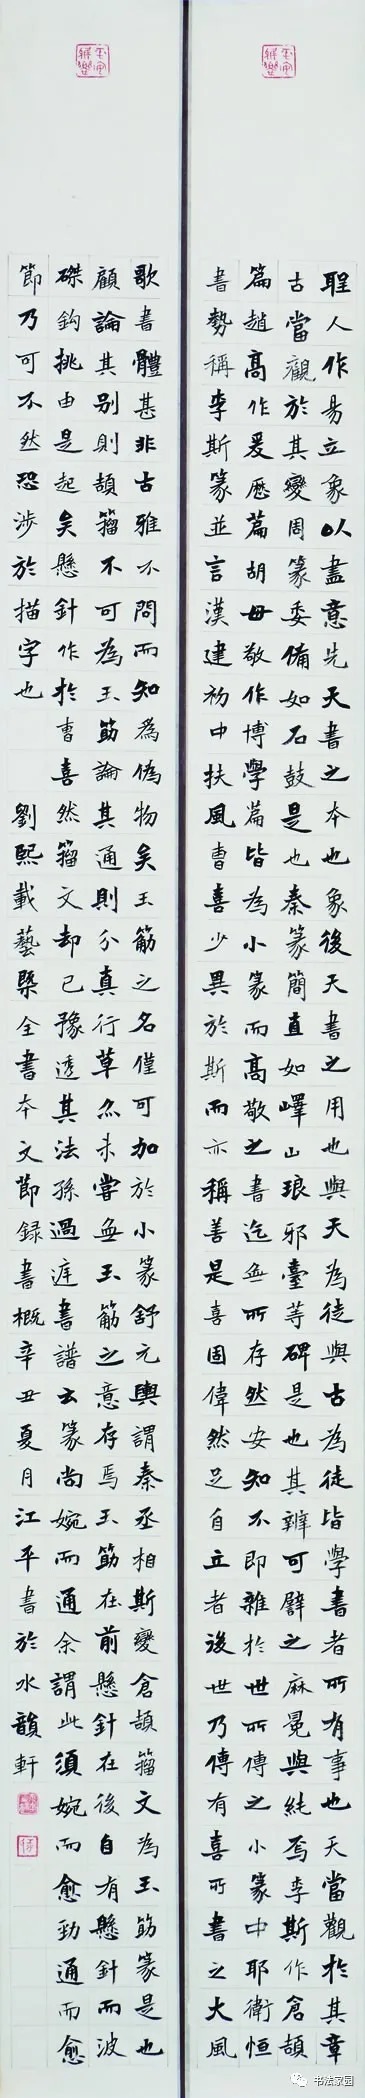 聖人作易立象以盡意先天書之本也象後天書之用也與天為徒與古為徒皆學書者所有事也天當觀於其章
古當觀於其變周篆委備如石鼓是也秦篆簡直如嶧山琅邪臺等碑是也其辨可譬之麻冕與純焉李斯作倉頡
篇趙高作爰歷篇胡毋敬作博學篇皆為小篆而高敬之書迄無所存然安知不即雜於世所傳之小篆中耶衛恒
書勢稱李斯篆並言漢建初中扶風曹喜少異於斯而亦稱善是喜固偉然足自立者後世乃傳有喜所書之大風
歌書體甚非古雅不問而知為偽物矣玉筯之名僅可加於小篆舒元輿謂秦丞相斯變倉頡籀文為玉筯篆是也
顧論其別則頡籀不可為玉筯論其通則分真行草亦未嘗無玉筯之意存焉玉筯在前懸針在後自有懸針而波
磔鉤挑由是起矣懸針作於曹喜然籀文却已豫透其法孫過庭書譜云篆尚婉而通余謂此須婉而愈勁通而愈
節乃可不然恐涉於描字也 劉熙載藝槩全書本文節録書概辛丑夏月江平書於水韻軒
书法家园